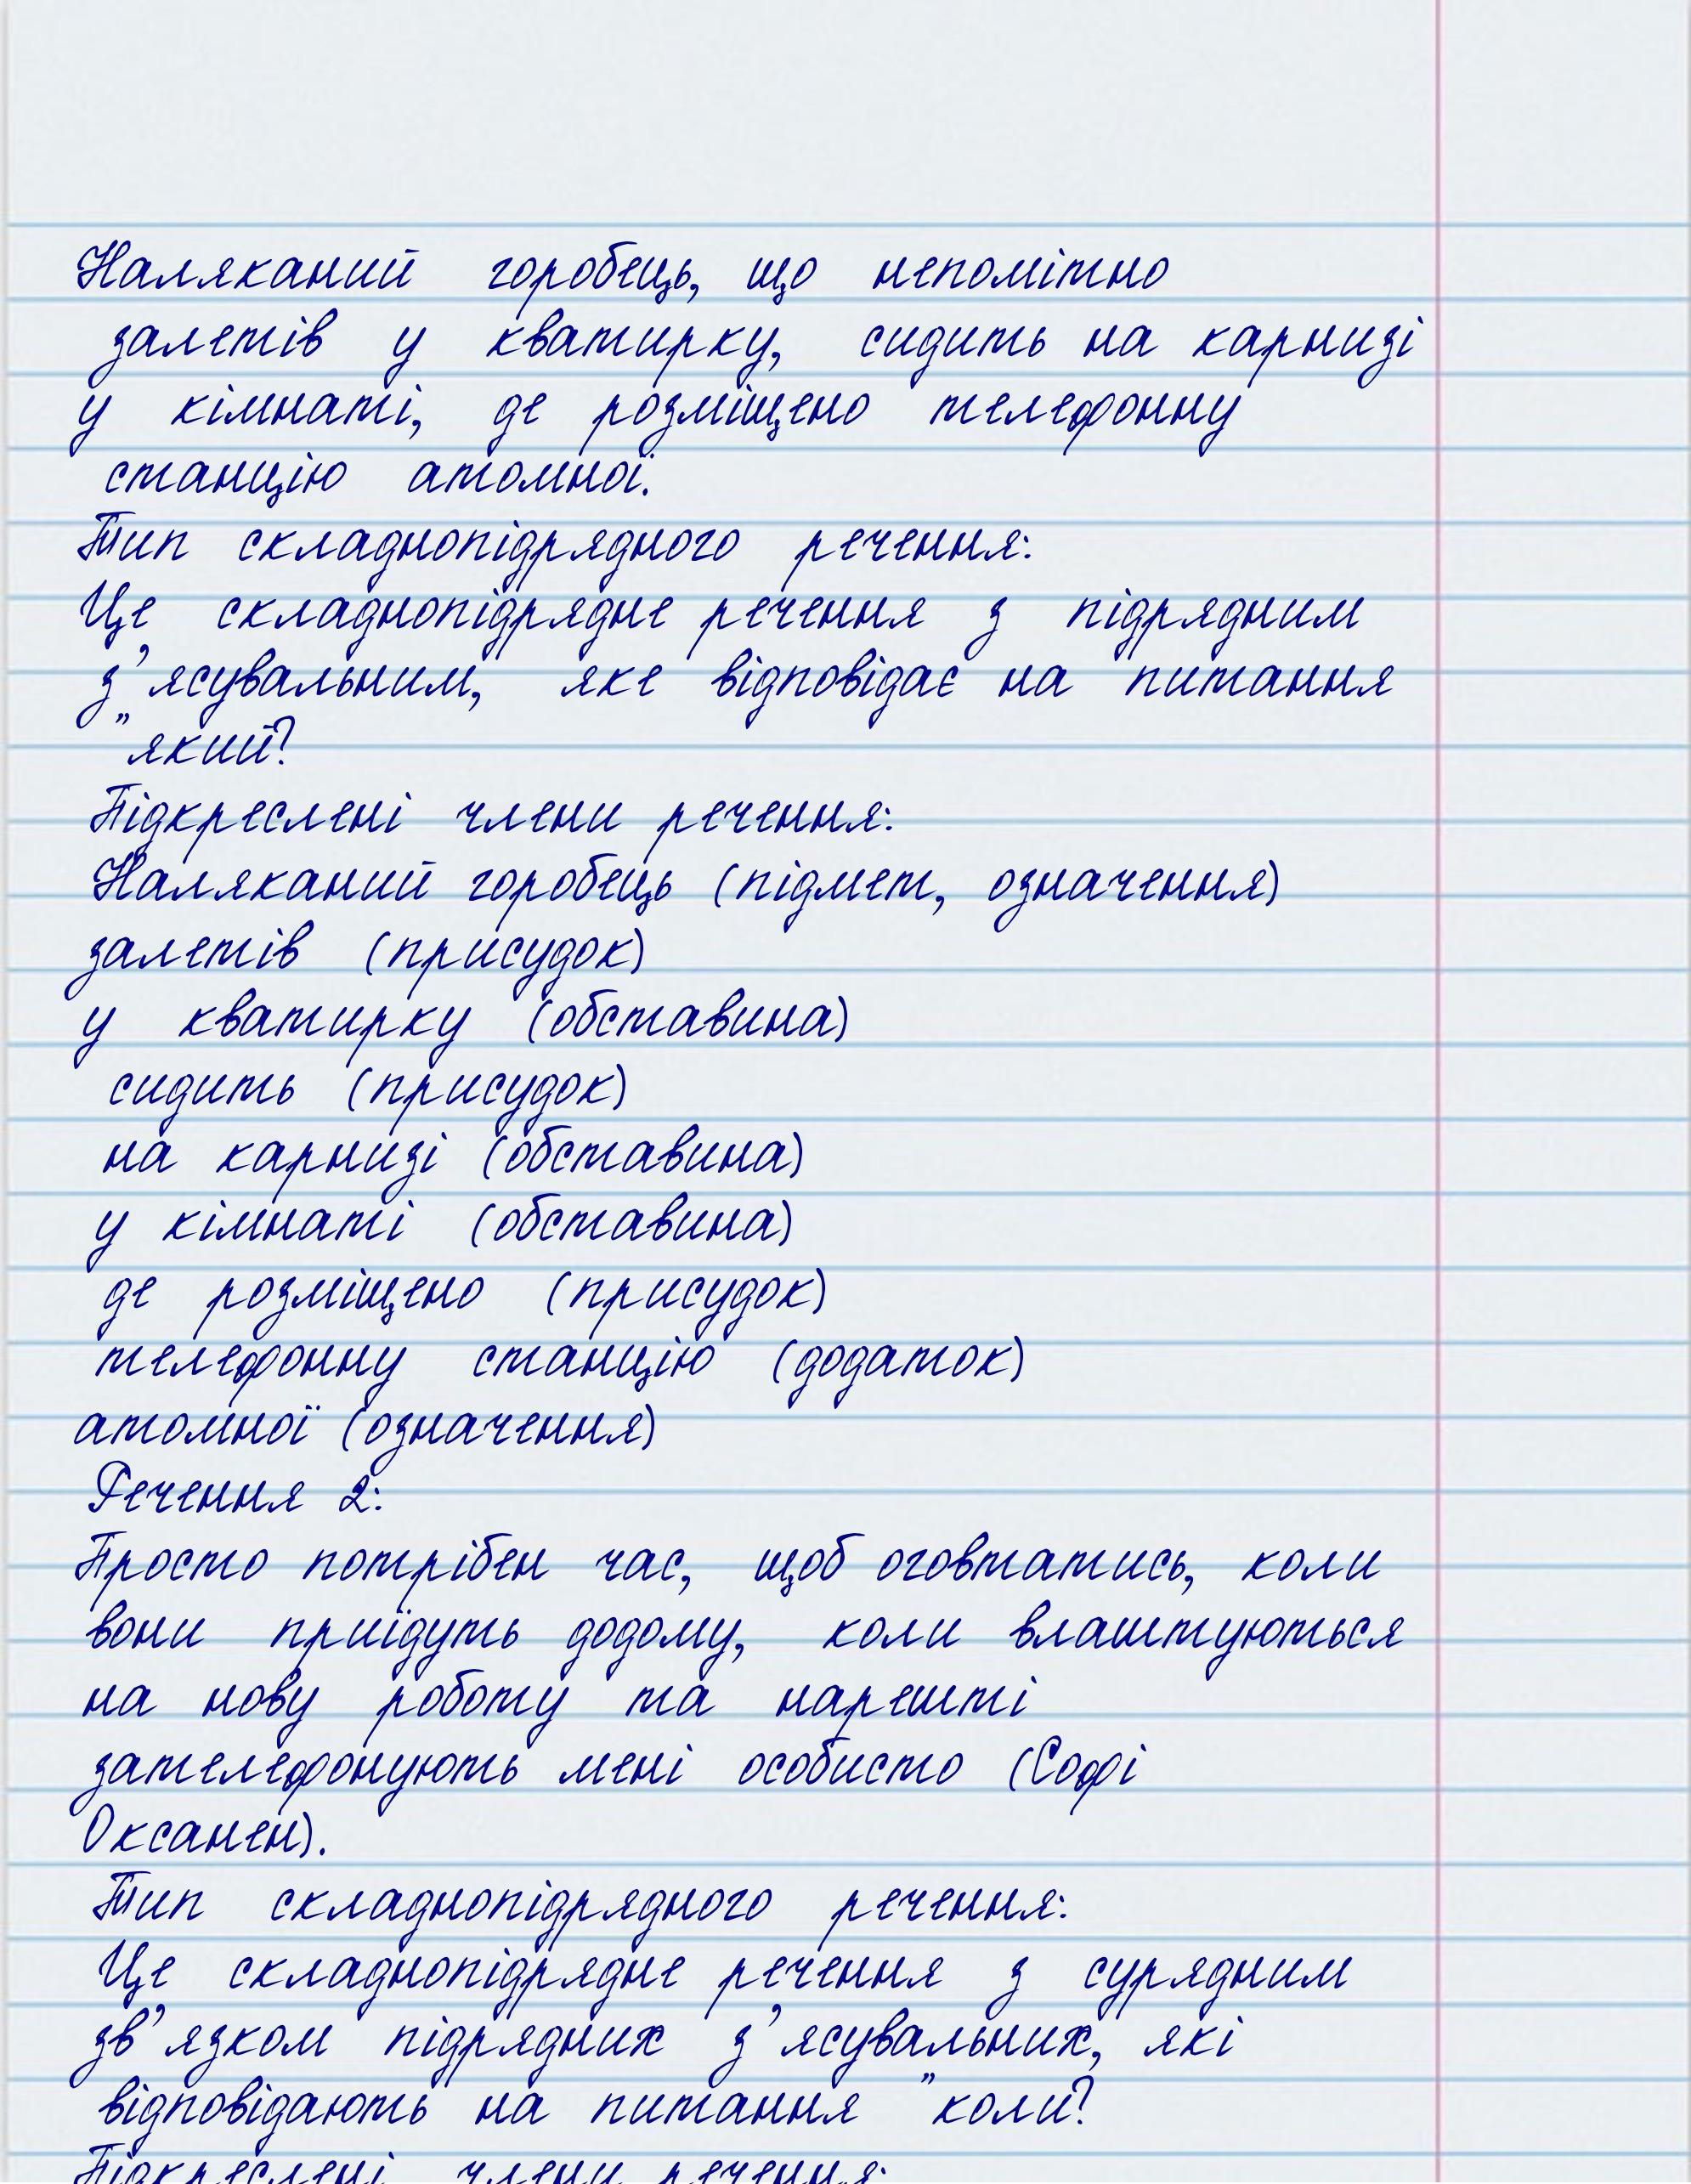 Наляканий горобець, що непомітно
залетів у кватирку, сидить на карнизі
у кімнаті, де розміщено телефонну
станцію атомної.
Тип складнопідрядного речення:
Це складнопідрядне речення з підрядним
з'ясувальним, яке відповідає на питання
"який?
Підкреслені члени речення:
Наляканий горобець (підмет, означення)
залетів (присудок)
у кватирку (обставина)
сидить (присудок)
на карнизі (обставина)
у кімнаті (обставина)
де розміщено (присудок)
телефонну станцію (додаток)
атомної (означення)
Речення 2:
Просто потрібен час, щоб оговтатись, коли
вони приїдуть додому, коли влаштуються
на нову роботу та нарешті
зателефонують мені особисто (Софі
Оксанен).
Тип складнопідрядного речення:
Це складнопідрядне речення з сурядним
зв'язком підрядних з'ясувальних, які
відповідають на питання "коли?
Підкреслені члени речення: